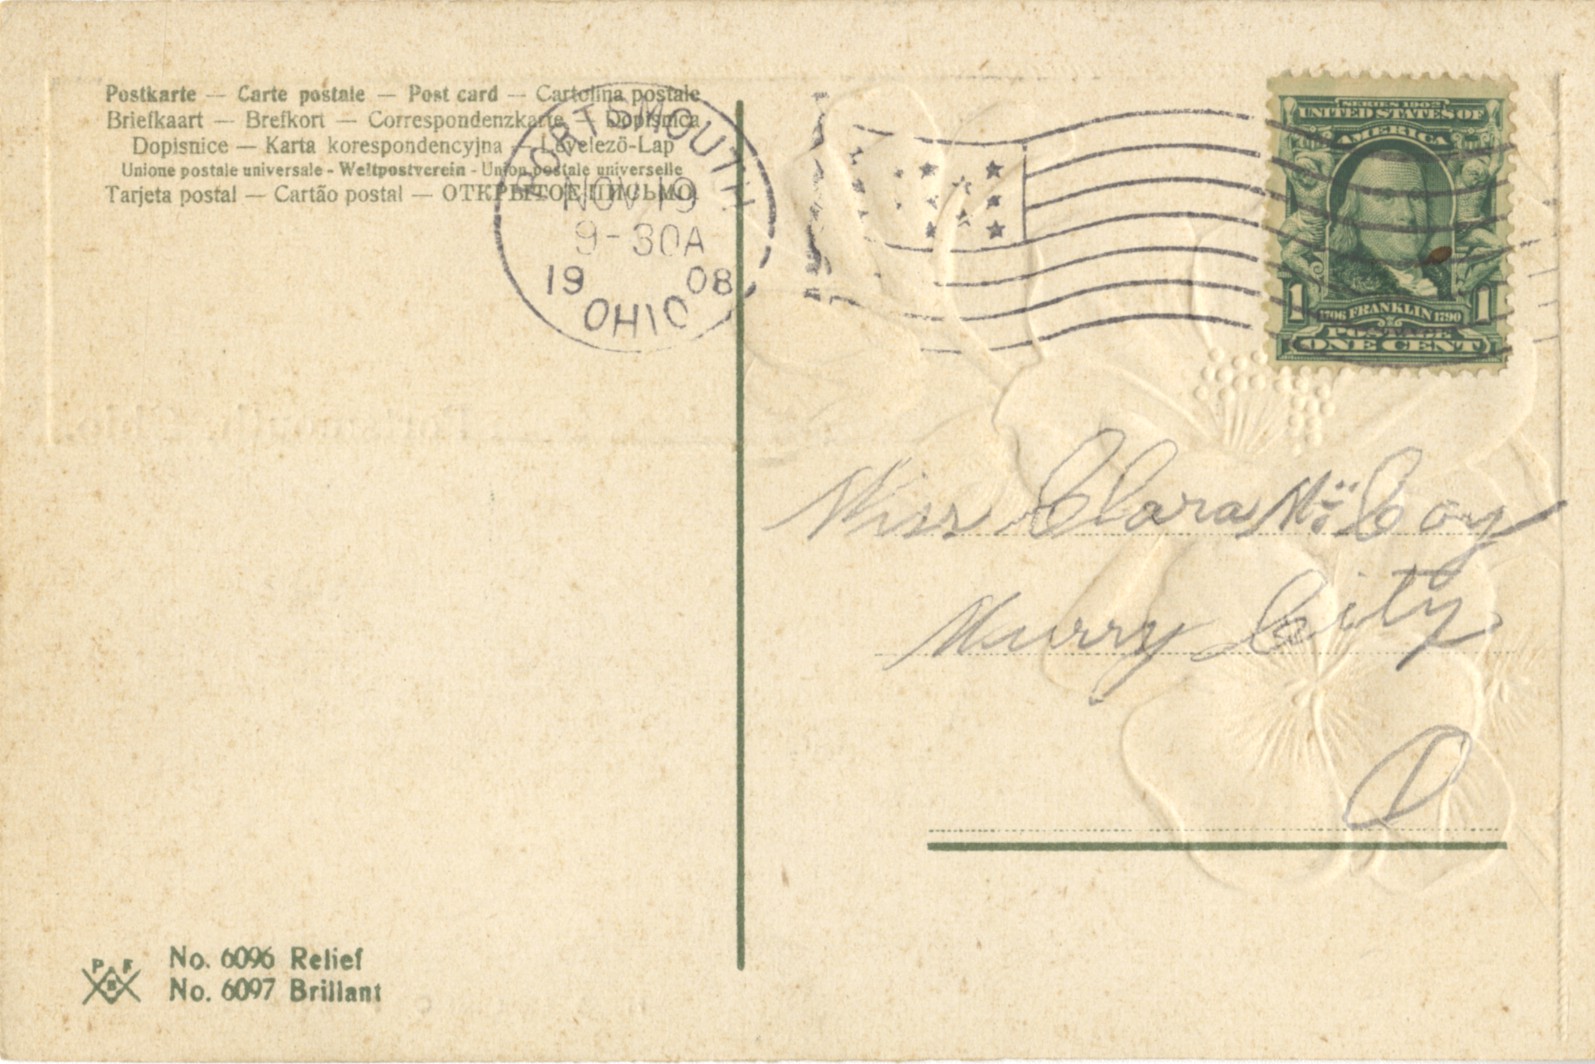 Postkarte — Carte postale — Post card — Cartolina postale
Briefkaart — Brefkort — Correspondenzkarte — Dopisnica
Dopisnice — Karta korespondencyjna — Levelezö-Lap
Unione postale universale - Weltpostverein - Union postale universelle
Tarjeta postal — Cartão postal — ОТКРЫТОЕ ПИСЬМО.
PORTSMOUTH
NOV 19
9-30A
19 08
OHIO
SERIES 1902
UNITED STATES OF
AMERICA
1 1
1706 FRANKLIN 1790
POSTAGE
ONE CENT
Miss Clara McCoy
Murry City
O
P F
B
No. 6096 Relief
No. 6097 Brillant